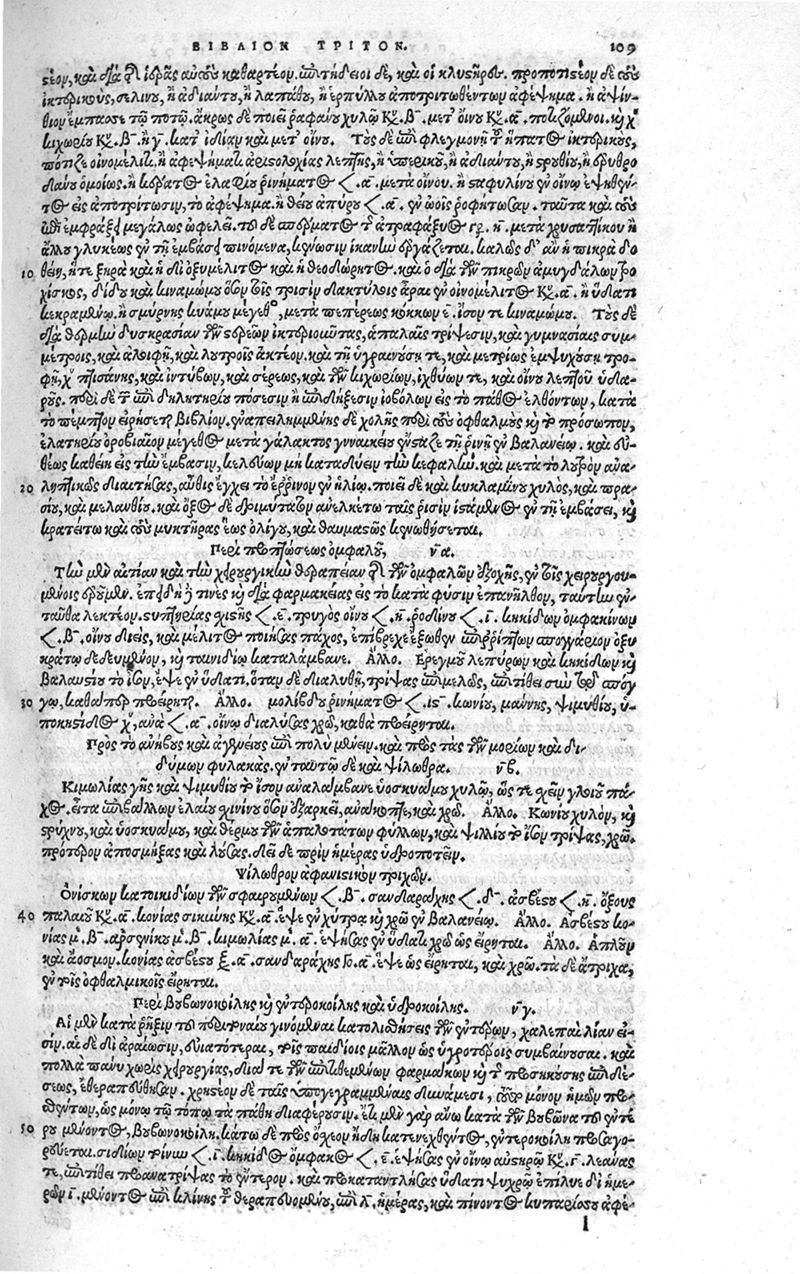 ΒΙΒΛΙΟΝ ΤΡΙΤΟΝ. 109
τέον, καὶ διὰ δὲ ἱδρῶτος αὐτοὺς καθαρτέον. ἐπιτήδειοι δὲ, καὶ οἱ κλυστῆρες. προποτιστέον δὲ τοὺς
ἰκτερικοὺς, σελίνου, ἢ ἀδιάντου, ἢ λαπάθου, ἢ ἑρπύλλου ἀποτριτωθέντων ἀφέψημα. ἢ ἀψίν-
θιον ἔμπασσε τῷ ποτῷ. ἄκρως δὲ ποιεῖ ῥαφάνου χυλῷ Κυ. β. μετ' οἴνου Κυ. α. ποτιζόμενοι. καὶ
κιχωρίου Κυ. β. ἢ γ. κατ' ἰδίαν καὶ μετ' οἴνου. Τοὺς δὲ ἐπὶ φλεγμονῇ τοῦ ἥπατος ἰκτερικοὺς,
πότιζε οἰνομέλιτι, ἢ ἀφεψήματι ἀριστολοχίας λεπτῆς, ἢ ὑπερικοῦ, ἢ ἀδιάντου, ἢ στρουθίου, ἢ ἐρυθρο
δάνου ὁμοίως. ἢ κέρατος ἐλαφείου ῥινήματος < α. μετὰ οἴνου. ἢ σταφυλίνου ἐν οἴνῳ ἑψηθέν-
τος εἰς ἀποτρίτωσιν, τὸ ἀφέψημα. ἢ θείου ἀπύρου < α. ἐν ὠοῖς ῥοφήτωσαν. ταῦτα καὶ τοὺς
ἐπὶ ἐμφράξει μεγάλως ὠφελεῖ. τὸ δὲ σπέρματος τοῦ ἀτραφάξυος γρ. η. μετὰ χρυσαττικοῦ ἢ
ἄλλου γλυκέως ἐν τῇ ἐμβάσει πινόμενα, κένωσιν ἱκανὴν ἐργάζεται. καλῶς δ' ἂν ἡ πικρὰ δο
10 θείη, ἥτε ξηρὰ καὶ ἡ δι' ὀξυμέλιτος καὶ ἡ θεοδώρητος. καὶ ὁ διὰ τῶν πικρῶν ἀμυγδάλων τρο
χίσκος, δίδου καὶ κιναμώμου ὅσον τοῖς τρισὶν δακτύλοις ἆραι ἐν οἰνομέλιτος Κυ. α. ἢ ὕδατι
κεκραμένῳ. ἢ σμύρνης κυάμου μέγεθος, μετὰ πεπέρεως κόκκων ε. ἴσον τε κιναμώμου. Τοὺς δὲ
διὰ θερμὴν δυσκρασίαν τῶν στερεῶν ἰκτεριοῦντας, ἁπαλαῖς τρίψεσιν, καὶ γυμνασίαις συμ-
μέτροις, καὶ ἀλοιφῇ, καὶ λουτροῖς ἀκτέον. καὶ τῇ ὑγραινούσῃ τε, καὶ μετρίως ἐμψυχούσῃ τρο-
φῇ, πτισάνης, καὶ ἰντύβων, καὶ σέρεως, καὶ τῶν κιχωρίων, ἰχθύων τε, καὶ οἴνου λεπτοῦ ὑδα-
ροῦς. περὶ δὲ τῶν ἐπὶ δηλητηρίου πόσεσιν ἢ ἐπὶ δήξεσιν ἰοβόλων εἰς τὸ πάθος ἐλθόντων, κατὰ
τὸ πέμπτον εἰρήσεται βιβλίον. ἐναπειλημμένης δὲ χολῆς περὶ τοὺς ὀφθαλμοὺς καὶ τὸ πρόσωπον,
ἐλατηρίου ὀροβιαῖον μέγεθος μετὰ γάλακτος γυναικείου ἔνσταζε τῇ ῥινὶ ἐν βαλανείῳ. καὶ εὐ-
θέως καθεὶς εἰς τὴν ἔμβασιν, κελεύων μὴ καταδύειν τὴν κεφαλήν. καὶ μετὰ τὸ λουτρὸν ἀνα-
20 ληπτικῶς διαιτήσας, αὖθις ἔγχει τὸ ἔρρινον ἐν ἡλίῳ. ποιεῖ δὲ καὶ κυκλαμίνου χυλὸς, καὶ πρα-
σίου, καὶ μελανθίου, καὶ ὄξος δὲ δριμύτατον ἀνελκέτω ταῖς ῥισὶν ἱστάμενος ἐν τῇ ἐμβάσει, καὶ
κρατείτω καὶ τοὺς μυκτῆρας ἕως ὀλίγου, καὶ θαυμαστῶς κενωθήσεται.
Περὶ προπτώσεως ὀμφαλοῦ, να.
Τὴν μὲν αἰτίαν καὶ τὴν χειρουργικὴν θεραπείαν τῆς τῶν ὀμφαλῶν ἐξοχῆς, ἐν τοῖς χειρουργου-
μένοις ἐροῦμεν. ἐπειδὴ τινες καὶ διὰ φαρμακείας εἰς τὸ κατὰ φύσιν ἐπανῆλθον, ταύτην ἐν-
ταῦθα λεκτέον. στυπτηρίας σχιστῆς < ε. τρυγὸς οἴνου < η. ῥοδίνου < ι. κηκίδων ὀμφακίνων
< β. οἴνου διεὶς, καὶ μέλιτος ποιήσας πάχος, ἐπίβρεχε ἔξωθεν ἐπιρρίπτων σπογγάριον ὀξυ
κράτῳ δεδευμένον, καὶ ταινιδίῳ καταλάμβανε. Ἄλλο. Ἐρεγμοῦ λεπύρων καὶ κηκίδων καὶ
βαλαυστίου τὸ ἴσον, ἕψε ἐν ὕδατι, ὅταν δὲ διαλυθῇ, τρίψας ἐπιμελῶς, ἐπιτίθει σὺν τῷ σπόγ
30 γῳ, καθάπερ προείρηται. Ἄλλο. μολίβδου ῥινήματος < ις. κωνίου, μάννης, ψιμυθίου, ὑ-
ποκηστίδος χυ, ἀνὰ < α. οἴνῳ διαλύσας χρῶ, καθὰ προείρηται.
Πρὸς τὸ ἀνήβους καὶ ἀγενείους ἐπὶ πολὺ μένειν. καὶ πρὸς τὰς τῶν μορίων καὶ δι-
δύμων φυλακάς. ἐν ταὐτῷ δὲ καὶ ψίλωθρα. νβ.
Κιμωλίας γῆς καὶ ψιμυθίου τὸ ἴσον ἀναλάμβανε ὑοσκυάμου χυλῷ, ὥς τε σχεῖν γλοιοῦ πά-
χος. εἶτα ἐπιβάλλων ἐλαίου σχινίνου ὅσον ἐξαρκεῖ, ἀνακόπτε, καὶ χρῶ. Ἄλλο. Κωνίου χυλὸν, καὶ
στρύχνου, καὶ ὑοσκυάμου, καὶ θέρμου τῶν ἁπαλωτάτων φύλλων, καὶ ψιλλίου τὸ ἴσον τρίψας, χρῶ.
πρότερον ἀποσμήξας καὶ λύσας. δεῖ δὲ πρὶν ἡμέρας ὑδροποτεῖν.
Ψίλωθρον ἀφανιστικὸν τριχῶν.
Ὀνίσκων κατοικιδίων τῶν σφαιρουμένων < β. σανδαράχης < δ. ἀσβέστου < η. ὄξους
40 παλαιοῦ Κυ. α. κονίας συκίνης Κυ. α. ἕψε ἐν χύτρᾳ καὶ χρῶ ἐν βαλανείῳ. Ἄλλο. Ἀσβέστου κο-
νίας μ. β. ἀρσενίκου μ. β. κιμωλίας μ. α. ἑψήσας ἐν ὕδατι χρῶ ὡς εἴρηται. Ἄλλο. Ἁπλοῦν
καὶ ἄοσμον. κονίας ἀσβέστου ξ. α. σανδαράχης Γο. α. ἕψε ὡς εἴρηται, καὶ χρῶ. τὰ δὲ ἄτριχα,
ἐν τοῖς ὀφθαλμικοῖς εἴρηται.
Περὶ βουβωνοκήλης καὶ ἐντεροκήλης καὶ ὑδροκήλης. νγ.
Αἱ μὲν κατὰ ῥῆξιν τοῦ περιτοναίου γινόμεναι κατολισθήσεις τῶν ἐντέρων, χαλεπαὶ λίαν εἰ-
σίν. αἱ δὲ δι' ἀραίωσιν, εὐιατότεραι, τοῖς παιδίοις μᾶλλον ὡς ὑγροτέροις συμβαίνουσαι. καὶ
πολλὰ πάνυ χωρὶς χειρουργίας, διά τε τῶν ἐπιτιθεμένων φαρμάκων καὶ τῆς προσηκούσης ἐπιδέ-
σεως, ἐθεραπεύθησαν. χρηστέον δὲ ταῖς ὑπογεγραμμέναις δυνάμεσι, τοῦτο μόνον ἡμῶν προ-
θέντων, ὡς μόνῳ τῷ τόπῳ τὰ πάθη διαφέρουσιν. ἔτι μὲν γὰρ ἄνω κατὰ τὸν βουβῶνα τοῦ ἐντέ
50 ρου μένοντος, βουβωνοκήλη. κάτω δὲ πρὸς ὄσχεον ἤδη κατενεχθέντος, ἐντεροκήλη προσαγο-
ρεύεται. σιδίων < ι. κηκίδος ὄμφακος < ε. ἑψήσας ἐν οἴνῳ αὐστηρῷ Κυ. γ. λεάνας
τε, ἐπιτίθει προανατρίψας τὸ ἔντερον. καὶ προκαταντλήσας ὕδατι ψυχρῷ ἐπίλυε δι' ἡμε-
ρῶν ι. μένοντος ἐπὶ κλίνης τοῦ θεραπευομένου, ἐπὶ λ. ἡμέρας, καὶ πίνοντος κυπαρίσσου ἀφέ-
l